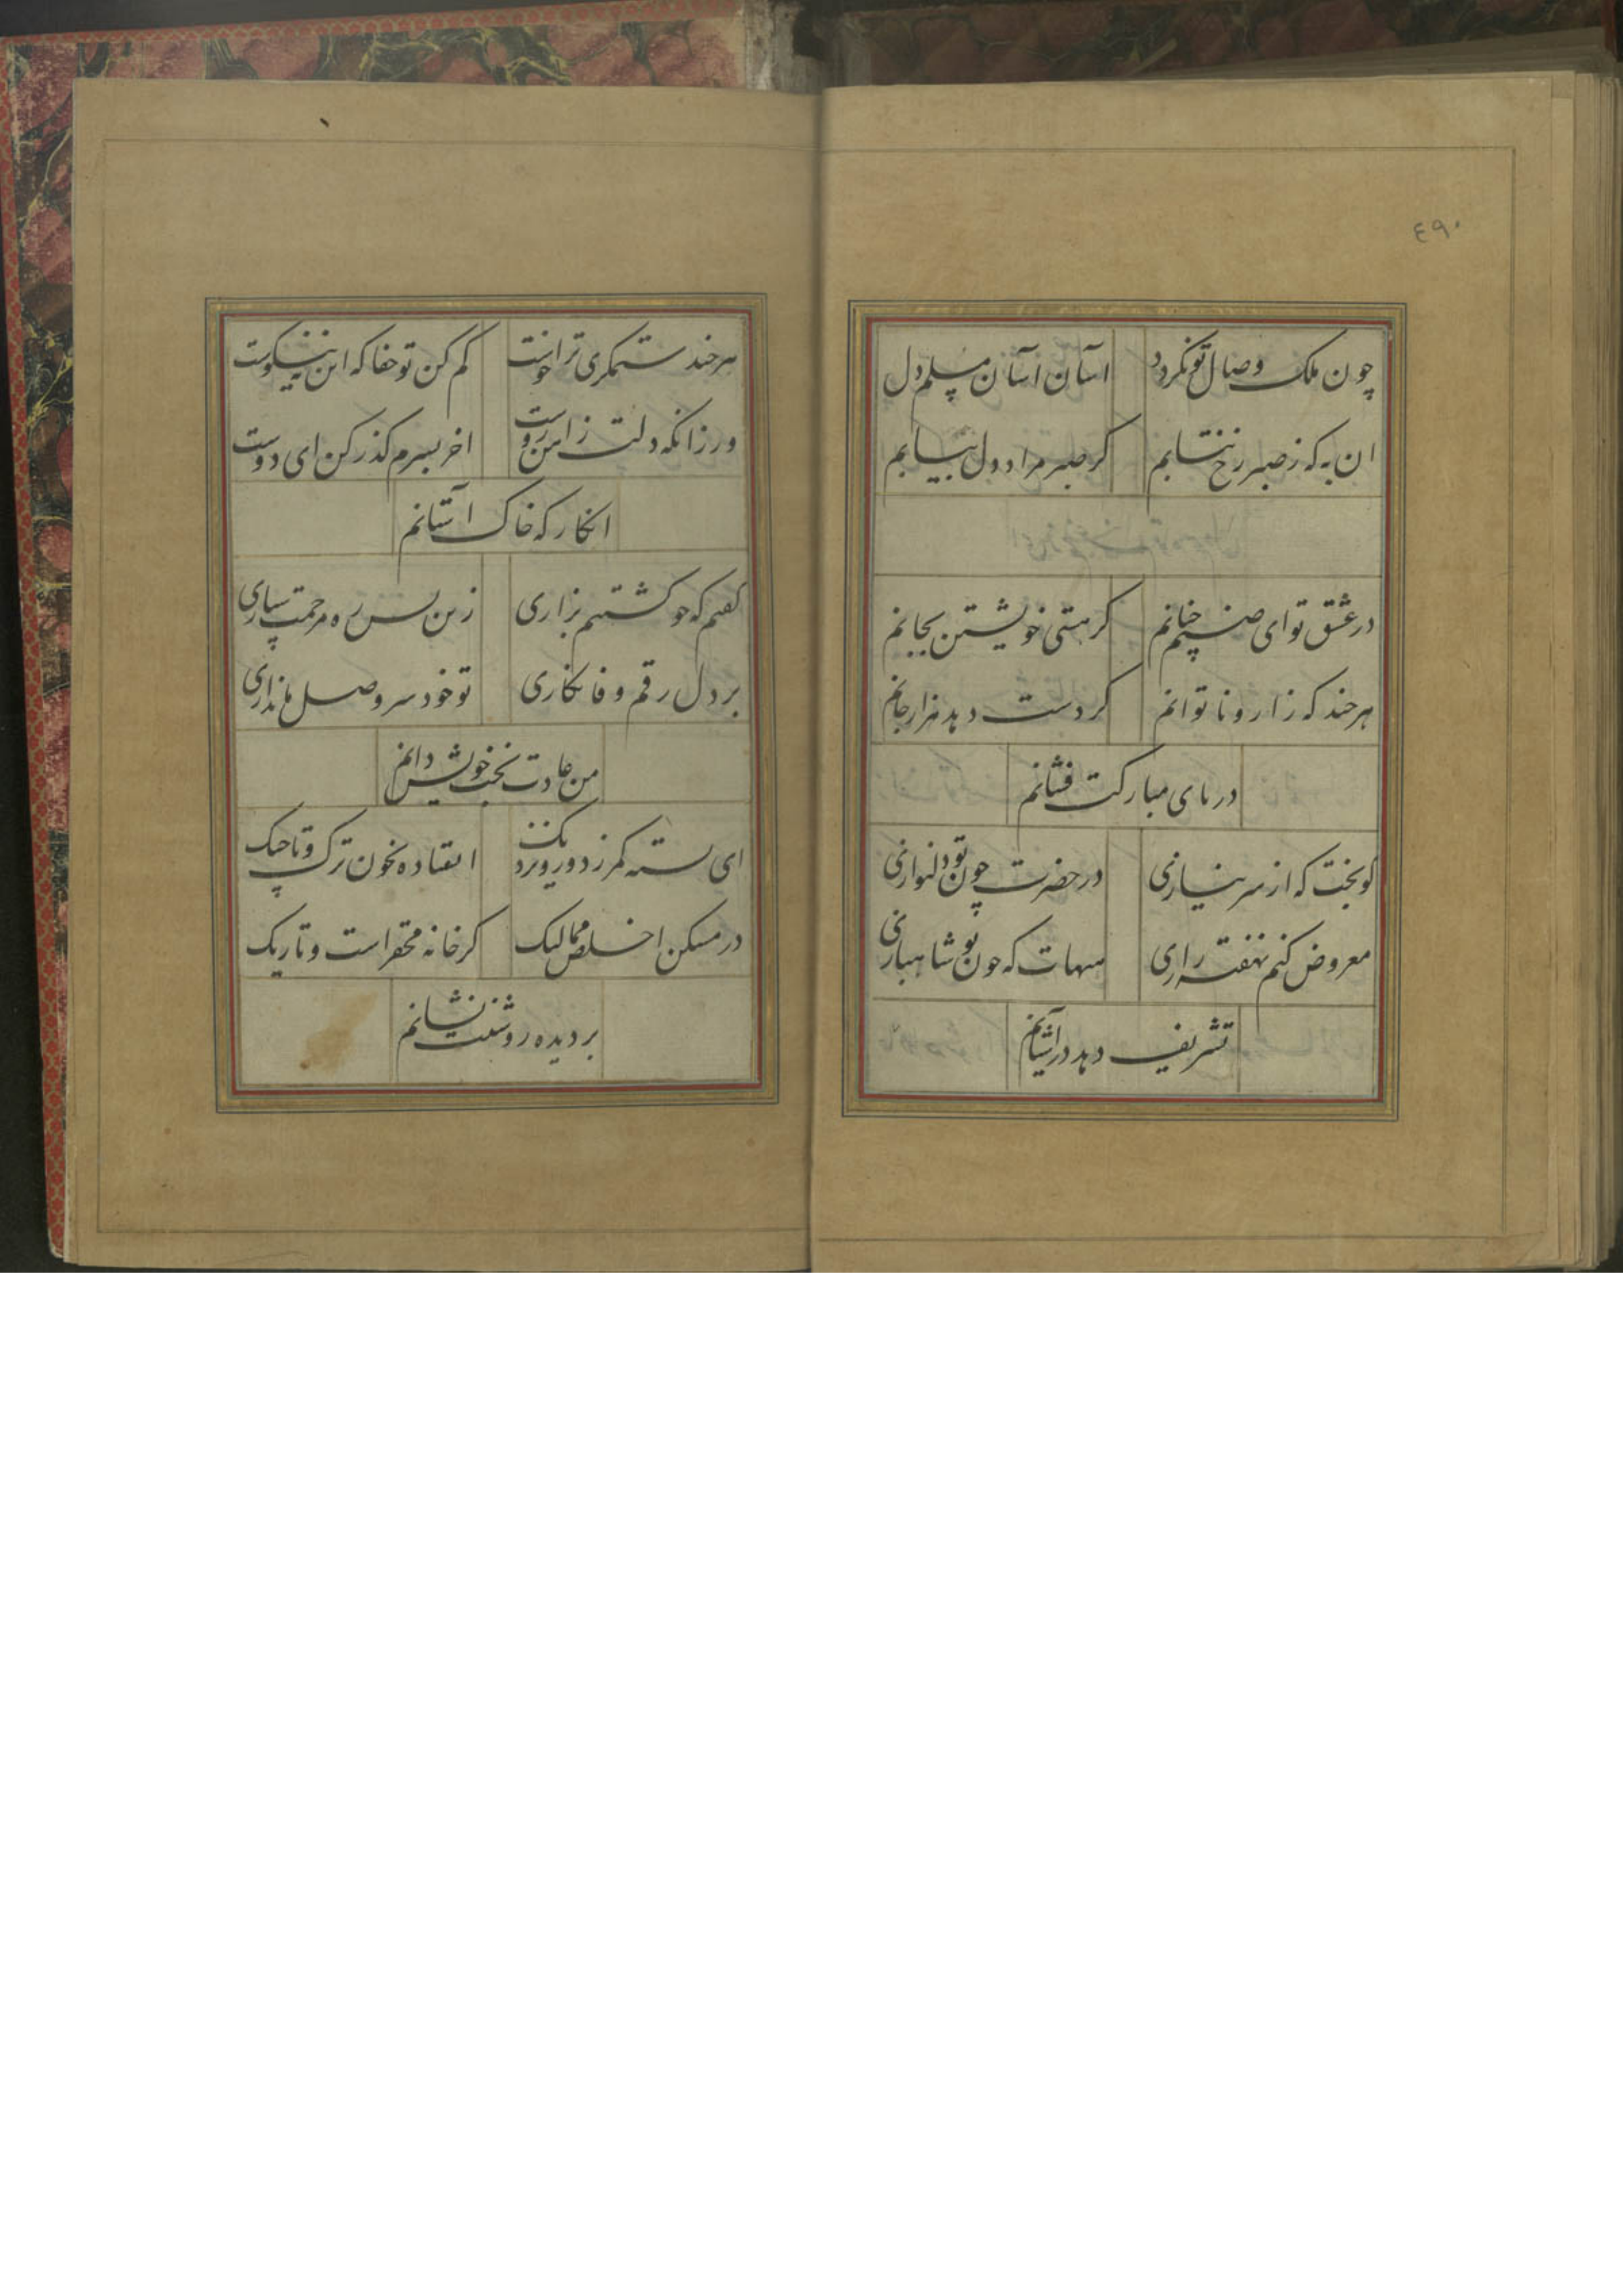 ٤٩٠
چون ملک وصال تو نکردد اسان اسان مسلم دل
ان به که ز صبر رخ نتابم کر صبر مراد دل بیابم
در عشق تو ای صنم چنانم کز هستی خویشتن بجانم
هر چند که زار و ناتوانم کر دست دهد هزار جانم
در پای مبارکت فشانم
کو بخت که از سر نیازی در حضرت چون تو دلنوازی
معروض کنم نهفته رازی هیهات که چون تو شاهبازی
تشریف دهد در آشیانم
هر چند ستمکری ترا خوست کم کن تو جفا که این نه نیکوست
ور زانکه دلت ز اهن و روست اخر بسرم کذر کن ای دوست
انکار که خاک آستانم
کفتم که چو کشتیم بزاری زین پس ره مرحمت سپاری
بر دل رقم وفا نکاری تو خود سر وصل ما نداری
من عادت بخت خویش دانم
ای بسته کمر ز دور و نزدیک افتاده بخون ترک و تاجیک
در مسکن اخلص ممالیک کر خانه محقر است و تاریک
بر دیده روشنت نشانم